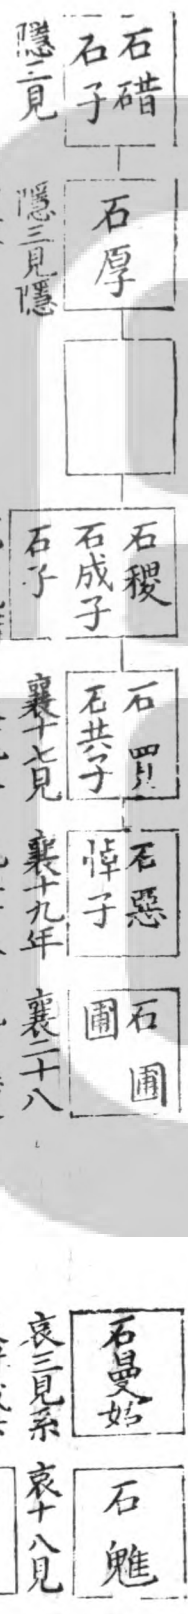 石碏
石子
隱三見
石厚
隱三見隱
石稷
石成子
石子
石買
石共子
襄十七見
石惡
悼子
襄十九年
石圃
圃
襄二十八
石曼姑
哀三見系
石魋
哀十八見